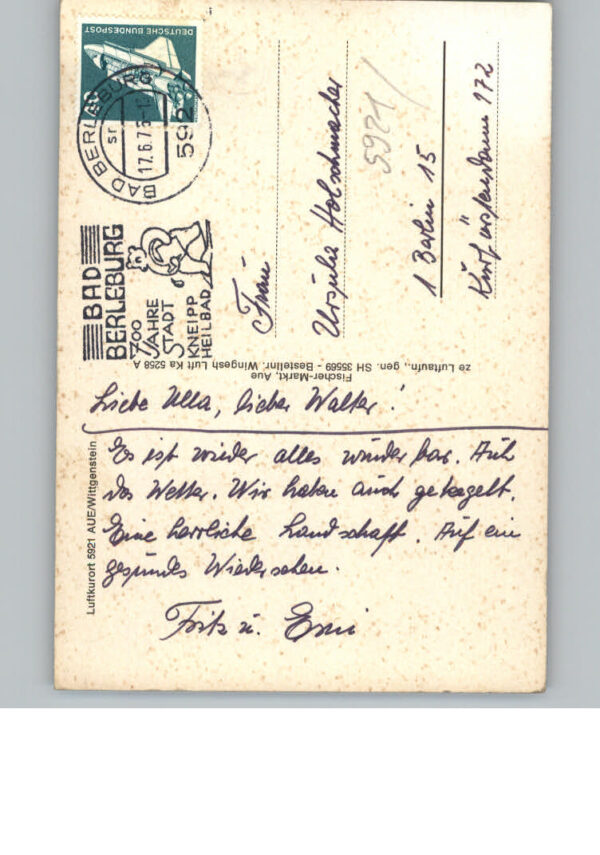 DEUTSCHE BUNDESPOST
BAD BERLEBURG
sr
17.6.75-1
592
BAD
BERLEBURG
700
JAHRE
STADT
KNEIPP
HEILBAD
Frau
Ursula Holschmacher
5921/
1 Berlin 15
Kurfürstendamm 172
ze Luftaufn., gen. SH 35569 - Bestellnr. Wingesh Luft Ka 5258 A
Fischer-Markt, Aue
Luftkurort 5921 AUE/Wittgenstein
Liebe Ulla, lieber Walter!
Es ist wieder alles wunderbar. Auch
das Wetter. Wir haben auch gekegelt.
Eine herrliche Landschaft. Auf ein
gesundes Wiedersehen.
Fritz u. Erni